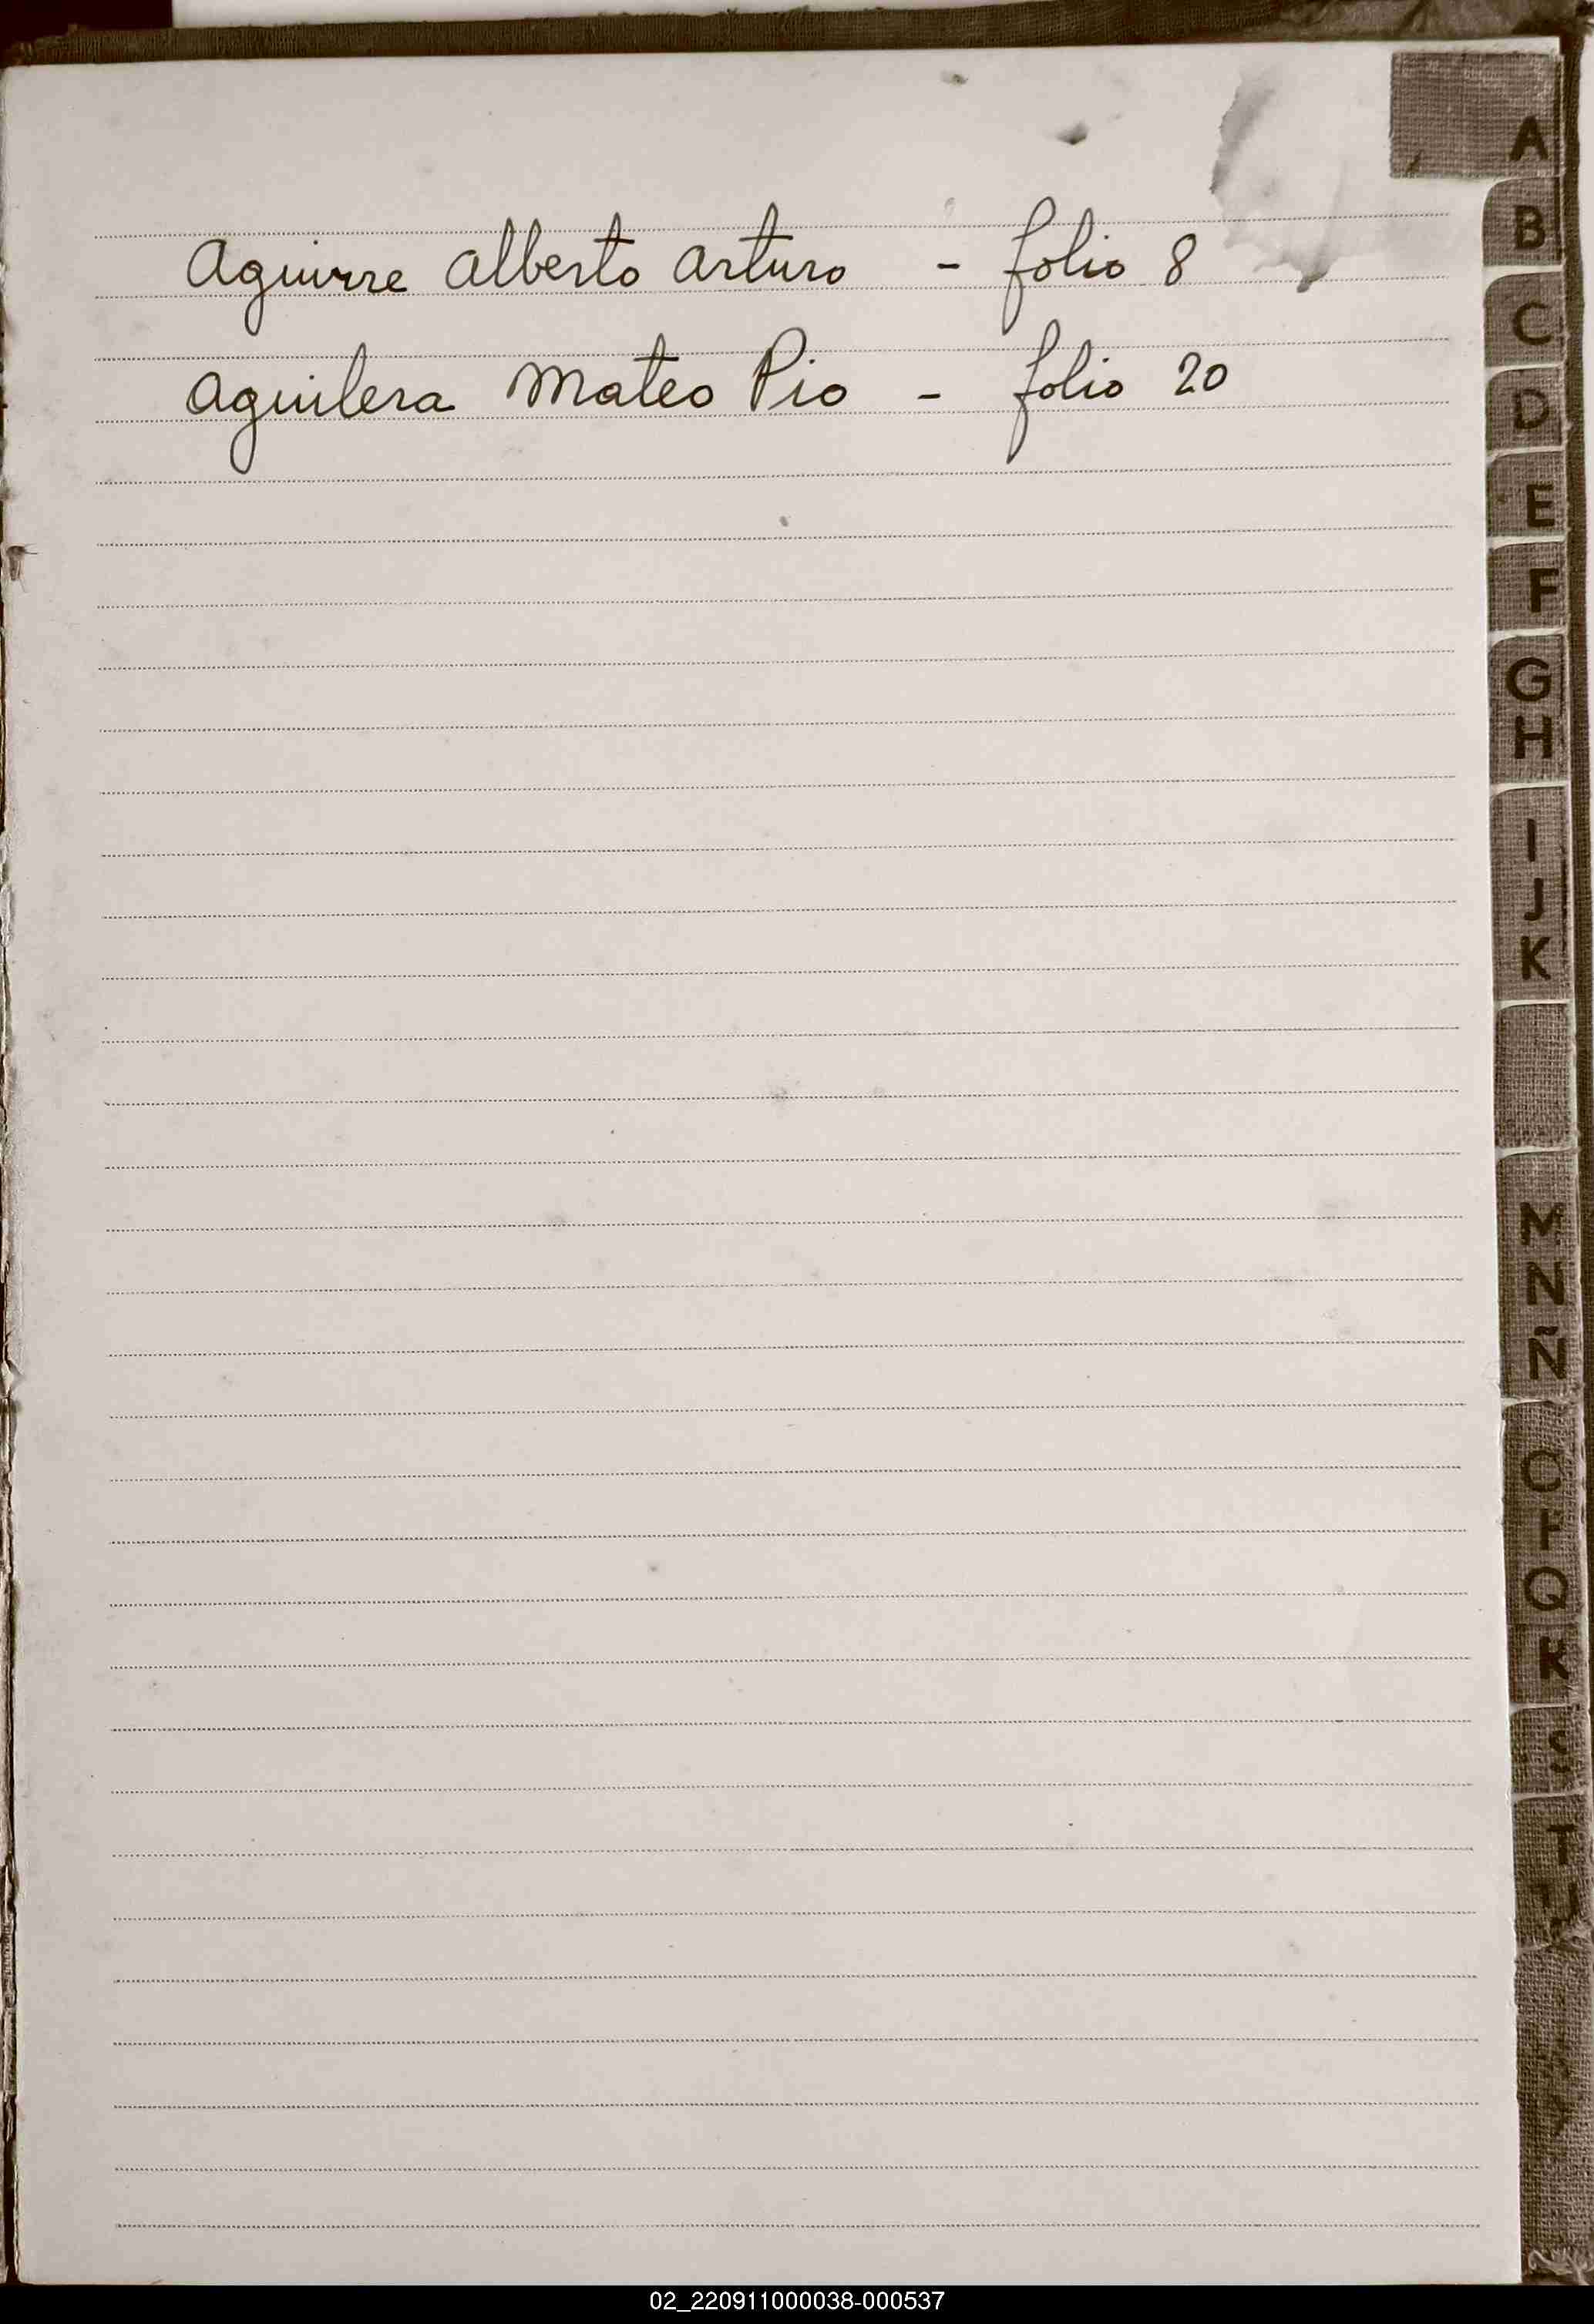 Aguirre Alberto Arturo - folio 8
Aguilera Mateo Pio - folio 20
A
B
C
D
E
F
G
H
I
J
K
M
N
Ñ
O
P
Q
R
S
T
02_220911000038-000537